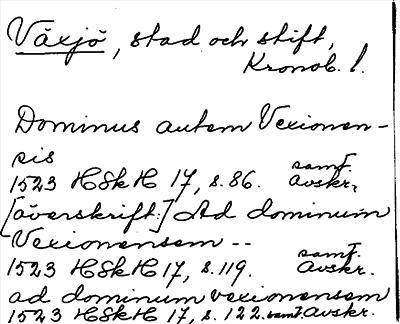 Växjö, stad och stift,
Kronob. l.
Dominus autem Vexionen-
sis
1523 HSkH 17, s. 86. samt. avskr.
[överskrift:] Ad dominum
Vexionensem --
1523 HSkH 17, s. 119. samt. avskr.
ad dominum vexionensem
1523 HSkH 17, s. 122. samt. avskr.